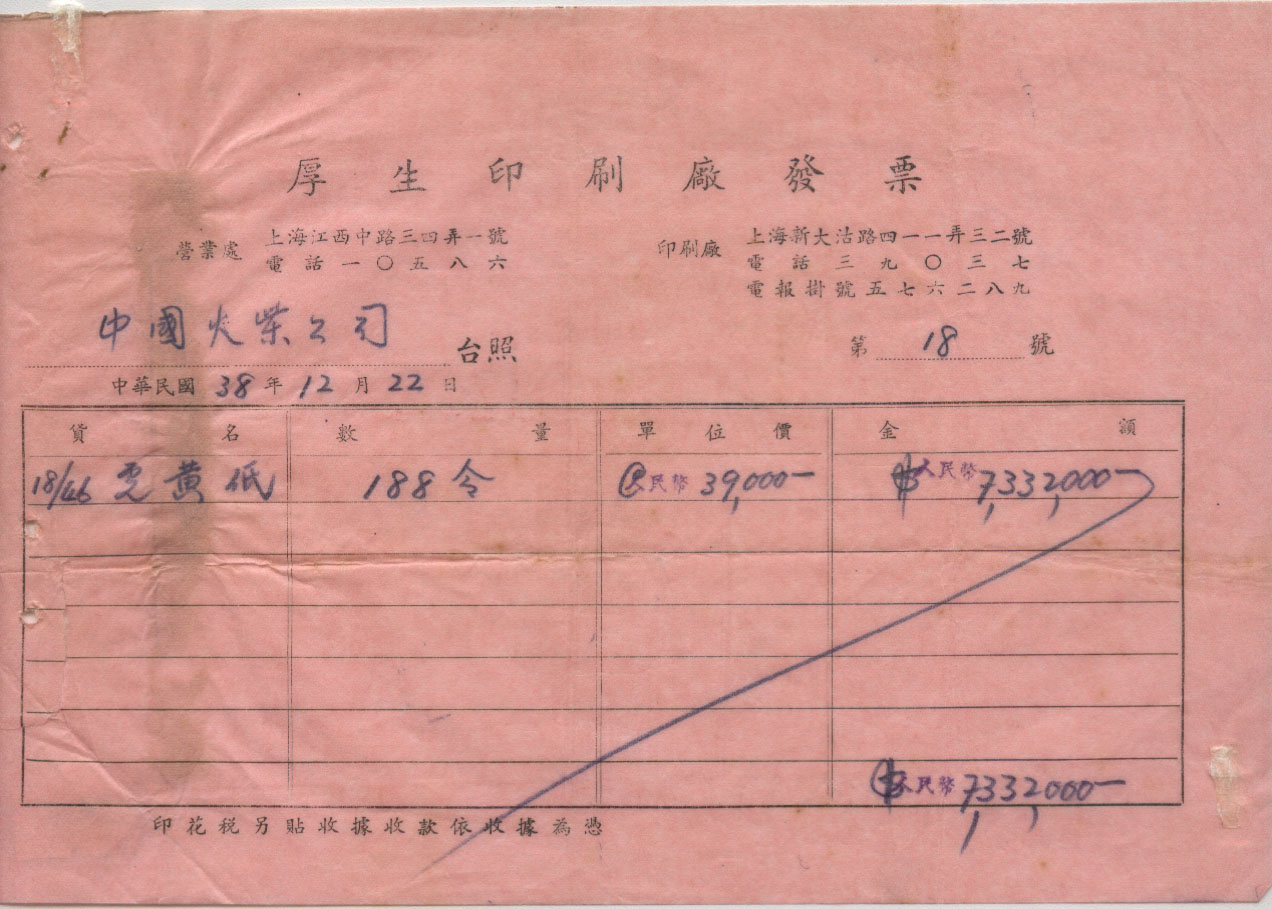 厚生印刷廠發票
營業處 上海江西中路三四弄一號
電話一〇五八六
印刷廠 上海新大沽路四一一弄三二號
電話三九〇三七
電報掛號五七六二八九
中國火柴公司 台照
第 18 號
中華民國 38 年 12 月 22 日
貨名 數量 單位價 金額
18/46 黃低 188令 @人民幣 39,000- 人民幣 7,332,000-
人民幣 7,332,000-
印花税另貼收據收款依收據為憑